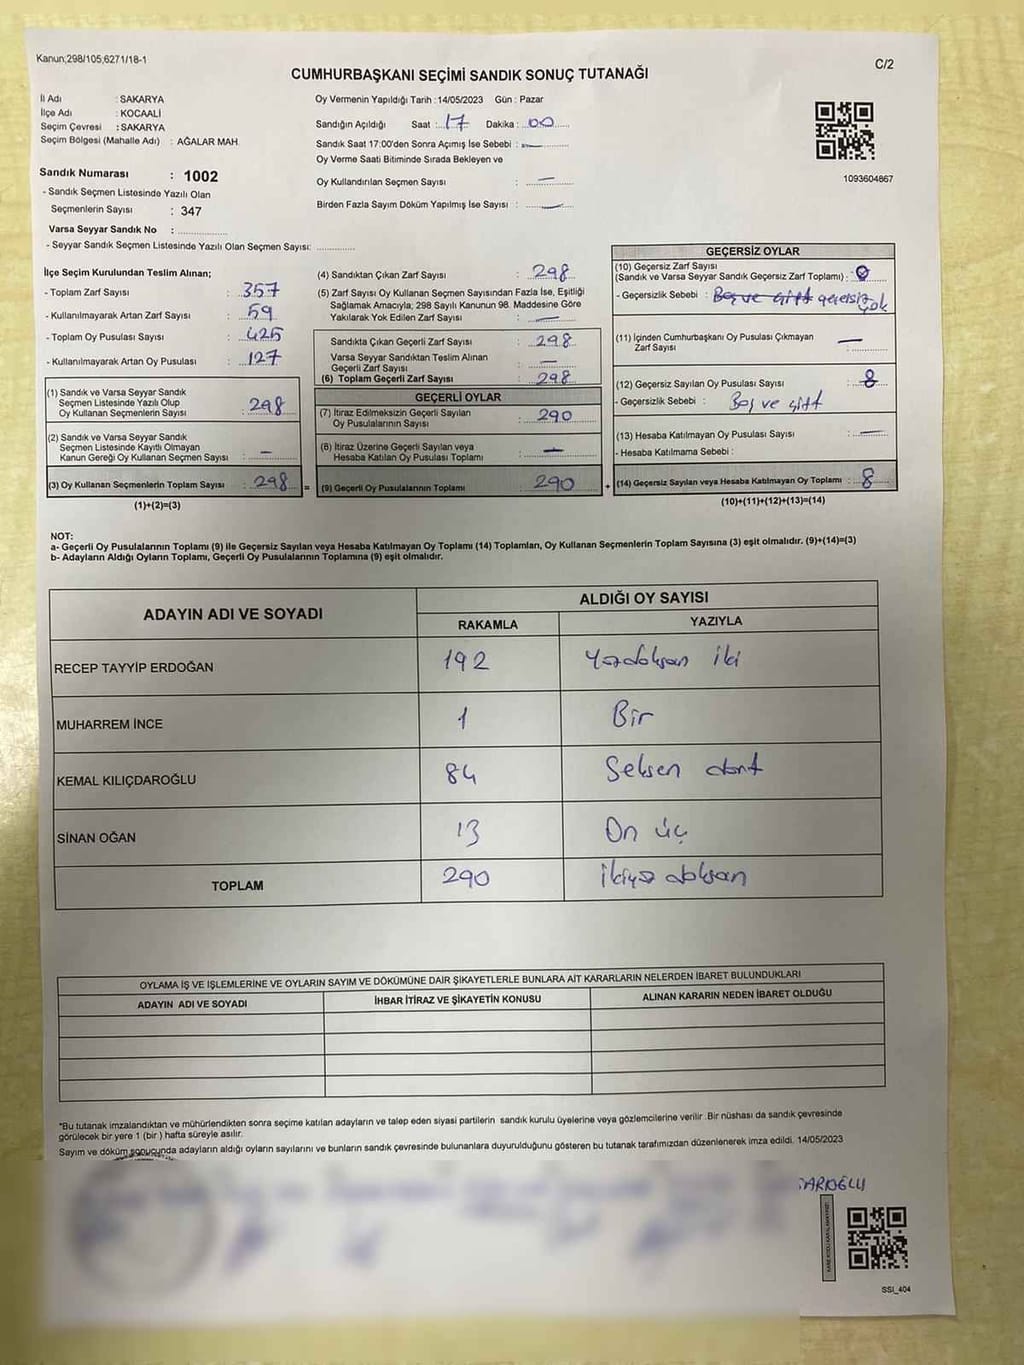 Kanun;298/105,6271/18-1
C/2
CUMHURBAŞKANI SEÇİMİ SANDIK SONUÇ TUTANAĞI
İl Adı : SAKARYA
İlçe Adı : KOCAALİ
Seçim Çevresi : SAKARYA
Seçim Bölgesi (Mahalle Adı) : AĞALAR MAH.
Sandık Numarası : 1002
- Sandık Seçmen Listesinde Yazılı Olan
Seçmenlerin Sayısı : 347
Varsa Seyyar Sandık No : ............
- Seyyar Sandık Seçmen Listesinde Yazılı Olan Seçmen Sayısı: ............
Oy Vermenin Yapıldığı Tarih :14/05/2023 Gün : Pazar
Sandığın Açıldığı Saat :..17 Dakika :..00.....
Sandık Saat 17:00'den Sonra Açımış İse Sebebi : —
Oy Verme Saati Bitiminde Sırada Bekleyen ve
Oy Kullandırılan Seçmen Sayısı : —
Birden Fazla Sayım Döküm Yapılmış İse Sayısı : —
1093604867
İlçe Seçim Kurulundan Teslim Alınan;
- Toplam Zarf Sayısı : 357
- Kullanılmayarak Artan Zarf Sayısı : 59
- Toplam Oy Pusulası Sayısı : 425
- Kullanılmayarak Artan Oy Pusulası : 127
(1) Sandık ve Varsa Seyyar Sandık
Seçmen Listesinde Yazılı Olup
Oy Kullanan Seçmenlerin Sayısı : 298
(2) Sandık ve Varsa Seyyar Sandık
Seçmen Listesinde Kayıtlı Olmayan
Kanun Gereği Oy Kullanan Seçmen Sayısı : —
(3) Oy Kullanan Seçmenlerin Toplam Sayısı : 298 =
(1)+(2)=(3)
(4) Sandıktan Çıkan Zarf Sayısı : 298
(5) Zarf Sayısı Oy Kullanan Seçmen Sayısından Fazla İse, Eşitliği
Sağlamak Amacıyla; 298 Sayılı Kanunun 98. Maddesine Göre
Yakılarak Yok Edilen Zarf Sayısı : —
Sandıkta Çıkan Geçerli Zarf Sayısı : 298
Varsa Seyyar Sandıktan Teslim Alınan
Geçerli Zarf Sayısı : —
(6) Toplam Geçerli Zarf Sayısı : 298
GEÇERLİ OYLAR
(7) İtiraz Edilmeksizin Geçerli Sayılan
Oy Pusulalarının Sayısı : 290
(8) İtiraz Üzerine Geçerli Sayılan veya
Hesaba Katılan Oy Pusulası Toplamı : —
(9) Geçerli Oy Pusulalarının Toplamı : 290 +
GEÇERSİZ OYLAR
(10) Geçersiz Zarf Sayısı
(Sandık ve Varsa Seyyar Sandık Geçersiz Zarf Toplamı) : 0
- Geçersizlik Sebebi : Boş ve çift geçersiz yok
(11) İçinden Cumhurbaşkanı Oy Pusulası Çıkmayan
Zarf Sayısı —
(12) Geçersiz Sayılan Oy Pusulası Sayısı : 8
- Geçersizlik Sebebi : Boş ve çift
(13) Hesaba Katılmayan Oy Pusulası Sayısı : —
- Hesaba Katılmama Sebebi :
(14) Geçersiz Sayılan veya Hesaba Katılmayan Oy Toplamı : 8
(10)+(11)+(12)+(13)=(14)
NOT:
a- Geçerli Oy Pusulalarının Toplamı (9) ile Geçersiz Sayılan veya Hesaba Katılmayan Oy Toplamı (14) Toplamları, Oy Kullanan Seçmenlerin Toplam Sayısına (3) eşit olmalıdır. (9)+(14)=(3)
b- Adayların Aldığı Oyların Toplamı, Geçerli Oy Pusulalarının Toplamına (9) eşit olmalıdır.
ADAYIN ADI VE SOYADI
ALDIĞI OY SAYISI
RAKAMLA YAZIYLA
RECEP TAYYİP ERDOĞAN 192 Yüzdoksan iki
MUHARREM İNCE 1 Bir
KEMAL KILIÇDAROĞLU 84 Seksen dört
SİNAN OĞAN 13 On üç
TOPLAM 290 İkiyüz doksan
OYLAMA İŞ VE İŞLEMLERİNE VE OYLARIN SAYIM VE DÖKÜMÜNE DAİR ŞİKAYETLERLE BUNLARA AİT KARARLARIN NELERDEN İBARET BULUNDUKLARI
ADAYIN ADI VE SOYADI İHBAR İTİRAZ VE ŞİKAYETİN KONUSU ALINAN KARARIN NEDEN İBARET OLDUĞU
*Bu tutanak imzalandıktan ve mühürlendikten sonra seçime katılan adayların ve talep eden siyasi partilerin sandık kurulu üyelerine veya gözlemcilerine verilir .Bir nüshası da sandık çevresinde
görülecek bir yere 1 (bir ) hafta süreyle asılır.
Sayım ve döküm sonucunda adayların aldığı oyların sayılarını ve bunların sandık çevresinde bulunanlara duyurulduğunu gösteren bu tutanak tarafımızdan düzenlenerek imza edildi. 14/05/2023
SSI_404